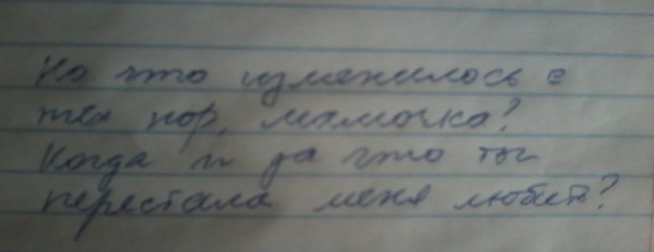 Но что изменилось с
тех пор, мамочка?
Когда и за что ты
перестала меня любить?